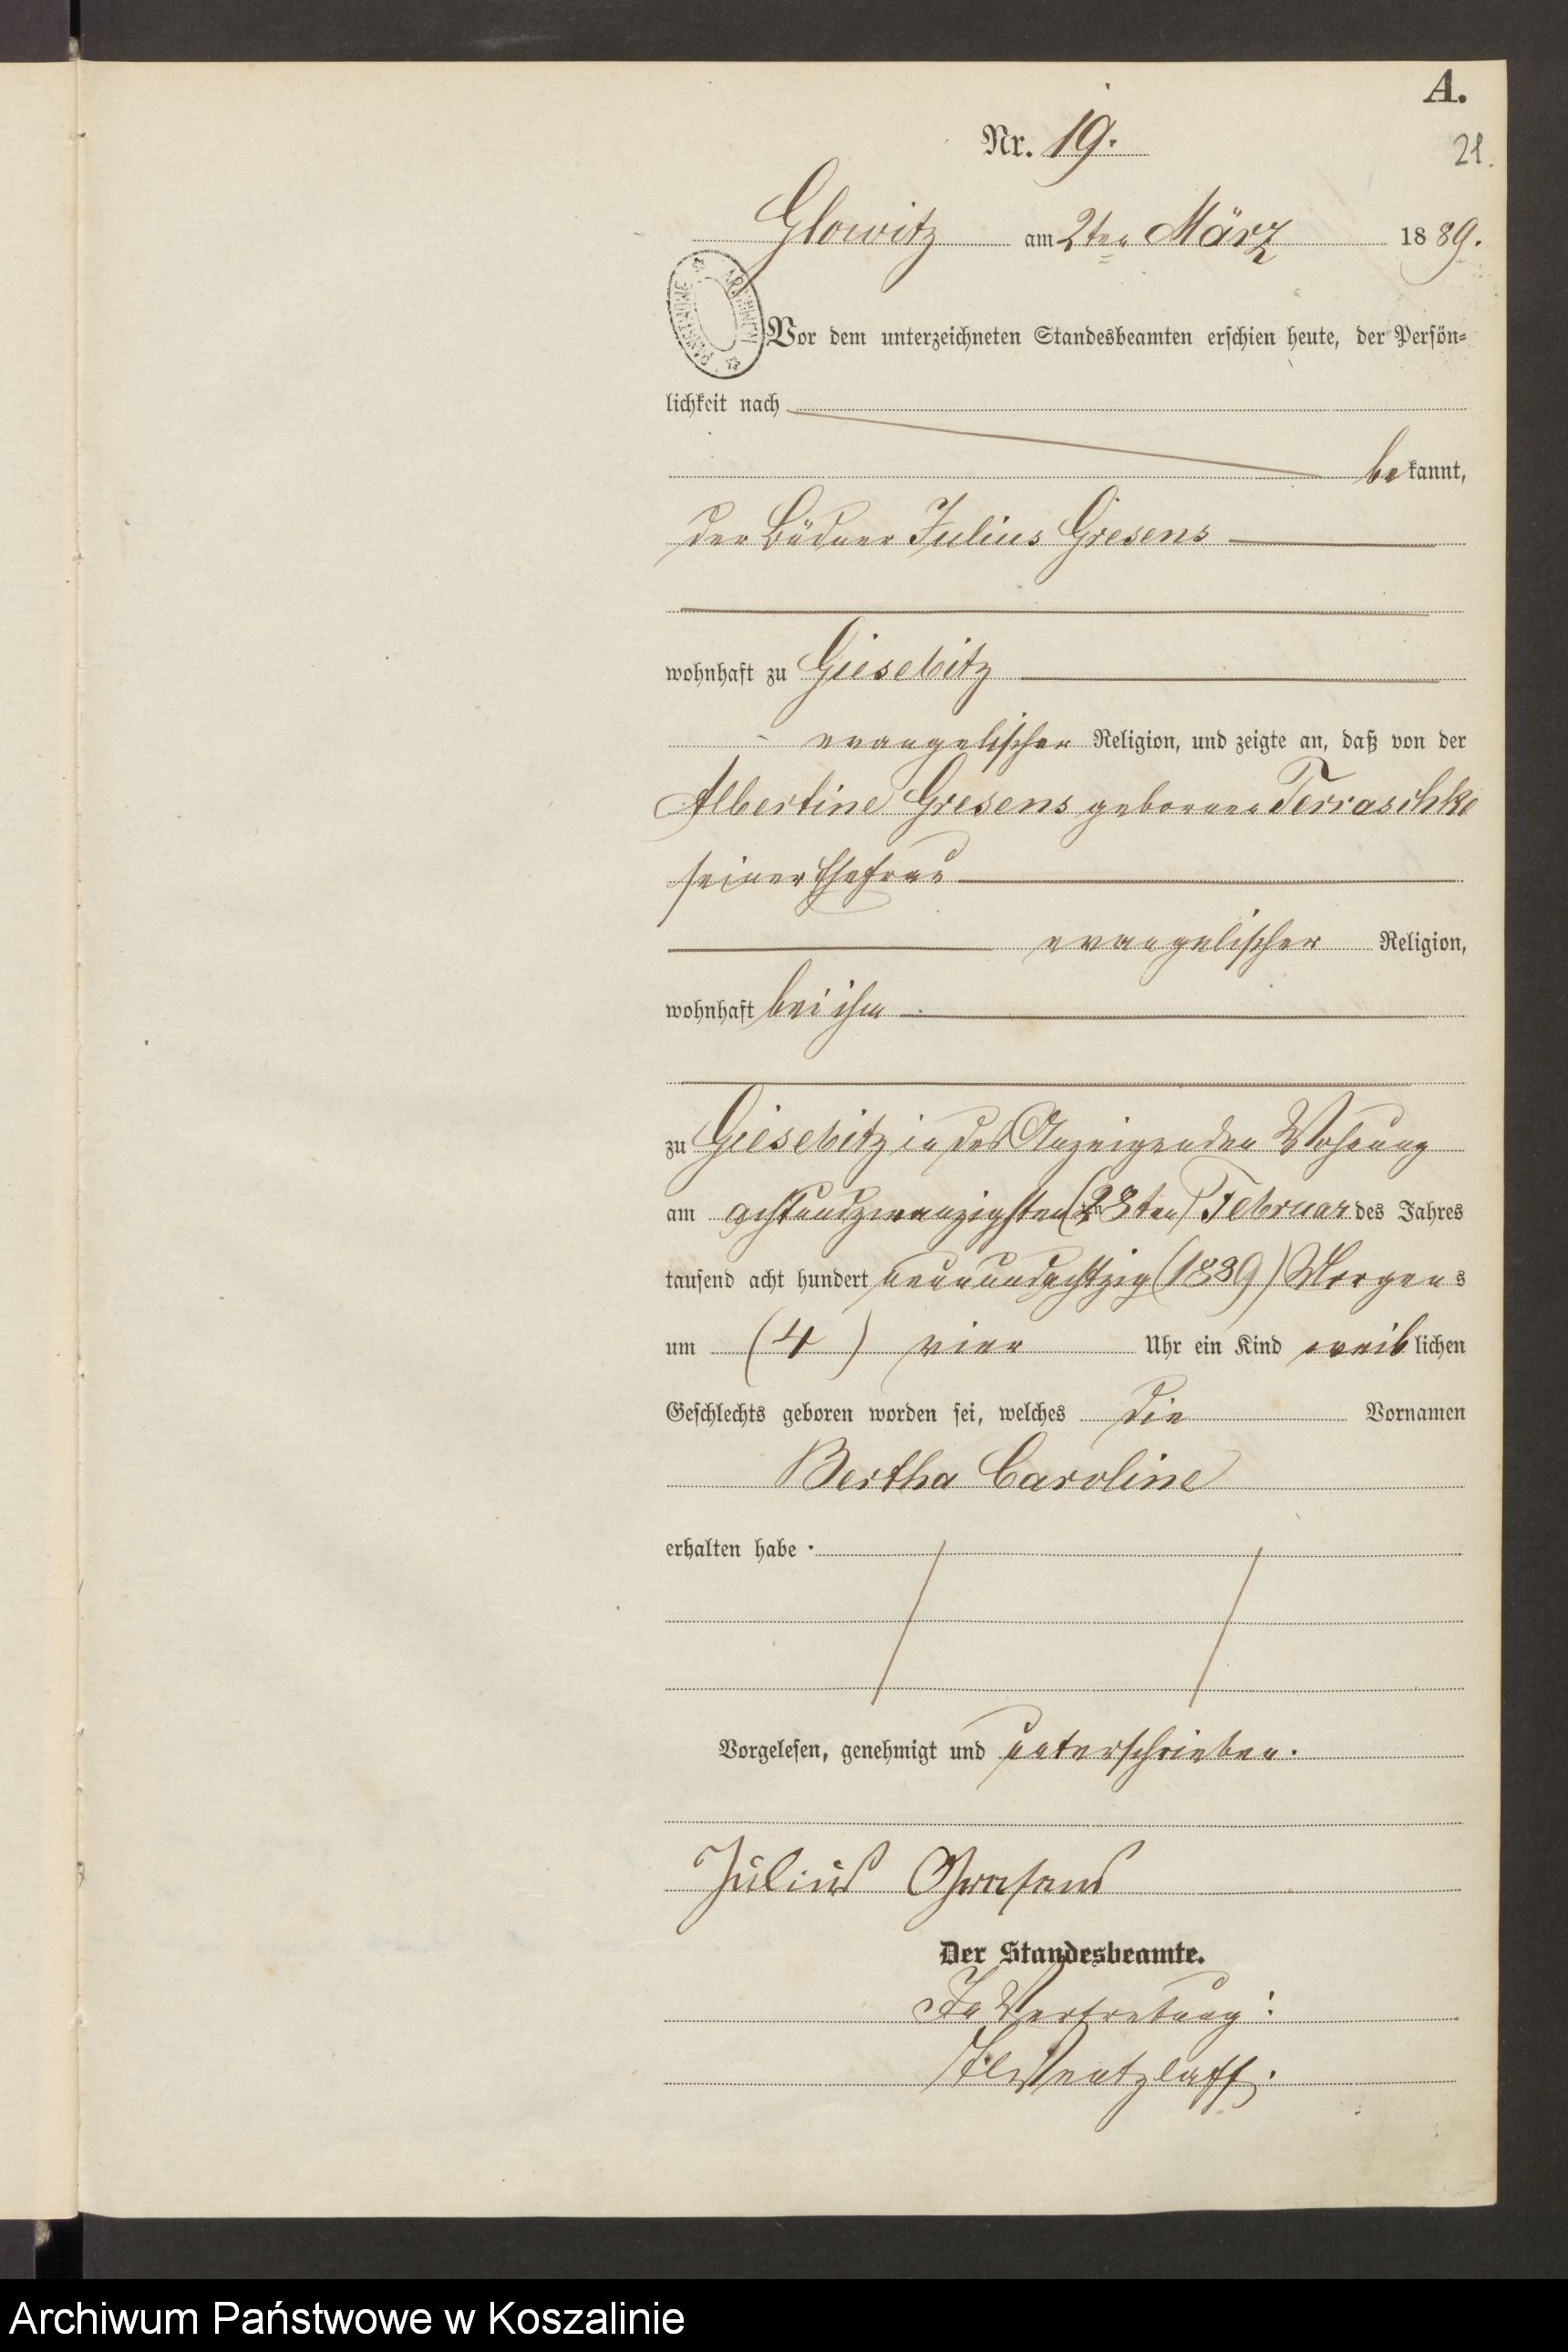 A.
Nr. 19.
21.
Glowitz am 2ten März 1889.
ARCHIWUM PAŃSTWOWE
Vor dem unterzeichneten Standesbeamten erschien heute, der Persön-
lichkeit nach
bekannt,
der Büdner Julius Gresens
wohnhaft zu Giesebitz
evangelischer Religion, und zeigte an, daß von der
Albertine Gresens geborenen Terraschke
seiner Ehefrau
evangelischer Religion,
wohnhaft bei ihm
zu Giesebitz in des Anzeigenden Wohnung
am achtundzwanzigsten (28ten) Februar des Jahres
tausend acht hundert neunundachtzig (1889) Morgens
um (4) vier Uhr ein Kind weiblichen
Geschlechts geboren worden sei, welches die Vornamen
Bertha Caroline
erhalten habe.
Vorgelesen, genehmigt und unterschrieben.
Julius Gresens
Der Standesbeamte.
In Vertretung:
Wentzlaff.
Archiwum Państwowe w Koszalinie